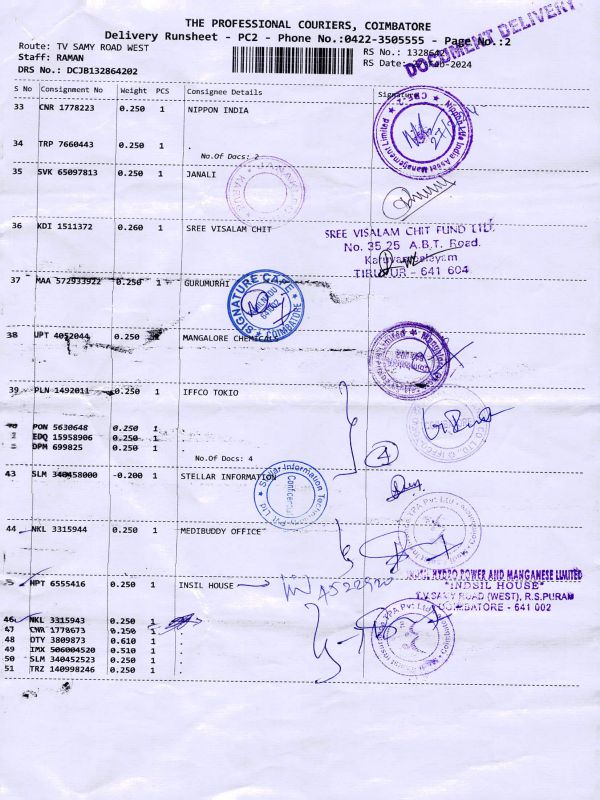 THE PROFESSIONAL COURIERS, COIMBATORE
Delivery Runsheet - PC2 - Phone No.:0422-3505555 - Page No.:2
DOCUMENT DELIVERY
Route: TV SAMY ROAD WEST
RS No.: 1328642
Staff: RAMAN
RS Date: -2024
DRS No.: DCJB132864202
S No Consignment No Weight PCS Consignee Details Signature
33 CNR 1778223 0.250 1 NIPPON INDIA
34 TRP 7660443 0.250 1 .
No.Of Docs: 2
35 SVK 65097813 0.250 1 JANALI
36 KDI 1511372 0.260 1 SREE VISALAM CHIT
SREE VISALAM CHIT FUND LTD.
No. 35,25 A.B.T. Road.
Karuvampalayam
TIRUPUR - 641 604
37 MAA 572933922 0.250 1 GURUMURHI
SIGNATURE CAFE
COIMBATORE
38 UPT 4052044 0.250 1 MANGALORE CHEMICALS
39 PLN 1492011 0.250 1 IFFCO TOKIO
40 PON 5630648 0.250 1
EDQ 15958906 0.250 1
DPM 699825 0.250 1
No.Of Docs: 4
4
43 SLM 340458000 -0.200 1 STELLAR INFORMATION
Stellar Information Technology Pvt Ltd
44 NKL 3315944 0.250 1 MEDIBUDDY OFFICE
MPT 6555416 0.250 1 INSIL HOUSE
INDSIL HYDRO POWER AND MANGANESE LIMITED
"INDSIL HOUSE"
T.V.SAMY ROAD (WEST), R.S.PURAM
COIMBATORE - 641 002
46 NKL 3315943 0.250 1 .
47 CWA 1778673 0.250 1 .
48 DTY 3809873 0.610 1 .
49 IMX 506004520 0.510 1 .
50 SLM 340452523 0.250 1 .
51 TRZ 140998246 0.250 1 .